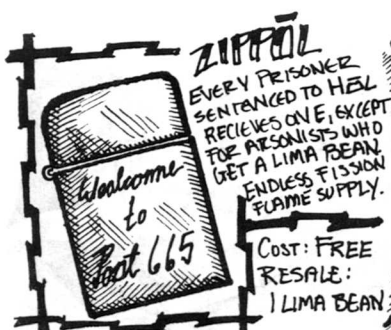 ZIPPŌL
EVERY PRISONER
SENTENCED TO HĒL
RECIEVES ONE, EXCEPT
FOR ARSONISTS WHO
GET A LIMA BEAN.
ENDLESS FISSION
FLAME SUPPLY.
Wealcome
to
Post 665
COST: FREE
RESALE:
1 LIMA BEAN